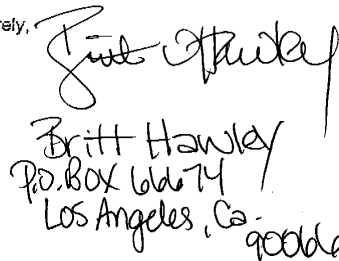 rely,
Britt Hawley
Britt Hawley
P.O. BOX 66674
Los Angeles, Ca.
90066